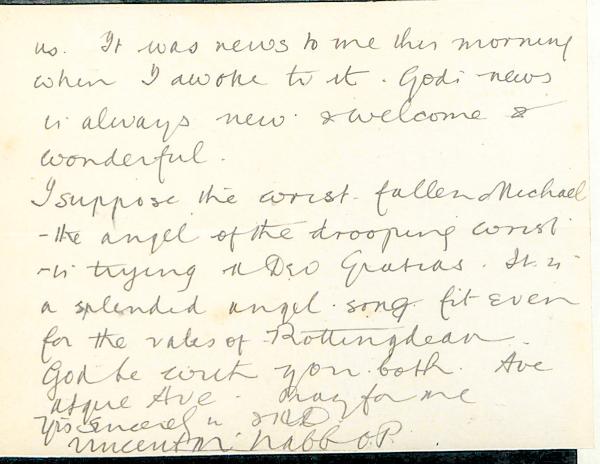 us. It was news to me this morning
when I awoke to it. God's news
is always new & welcome &
wonderful.
I suppose the wrist-fallen Michael
- the angel of the drooping wrist
- is trying a Deo Gratias. It is
a splendid angel song fit even
for the vales of Rottingdean.
God be with you both. Ave
atque Ave. Pray for me
Yrs sincerely in
Vincent McNabb O.P.